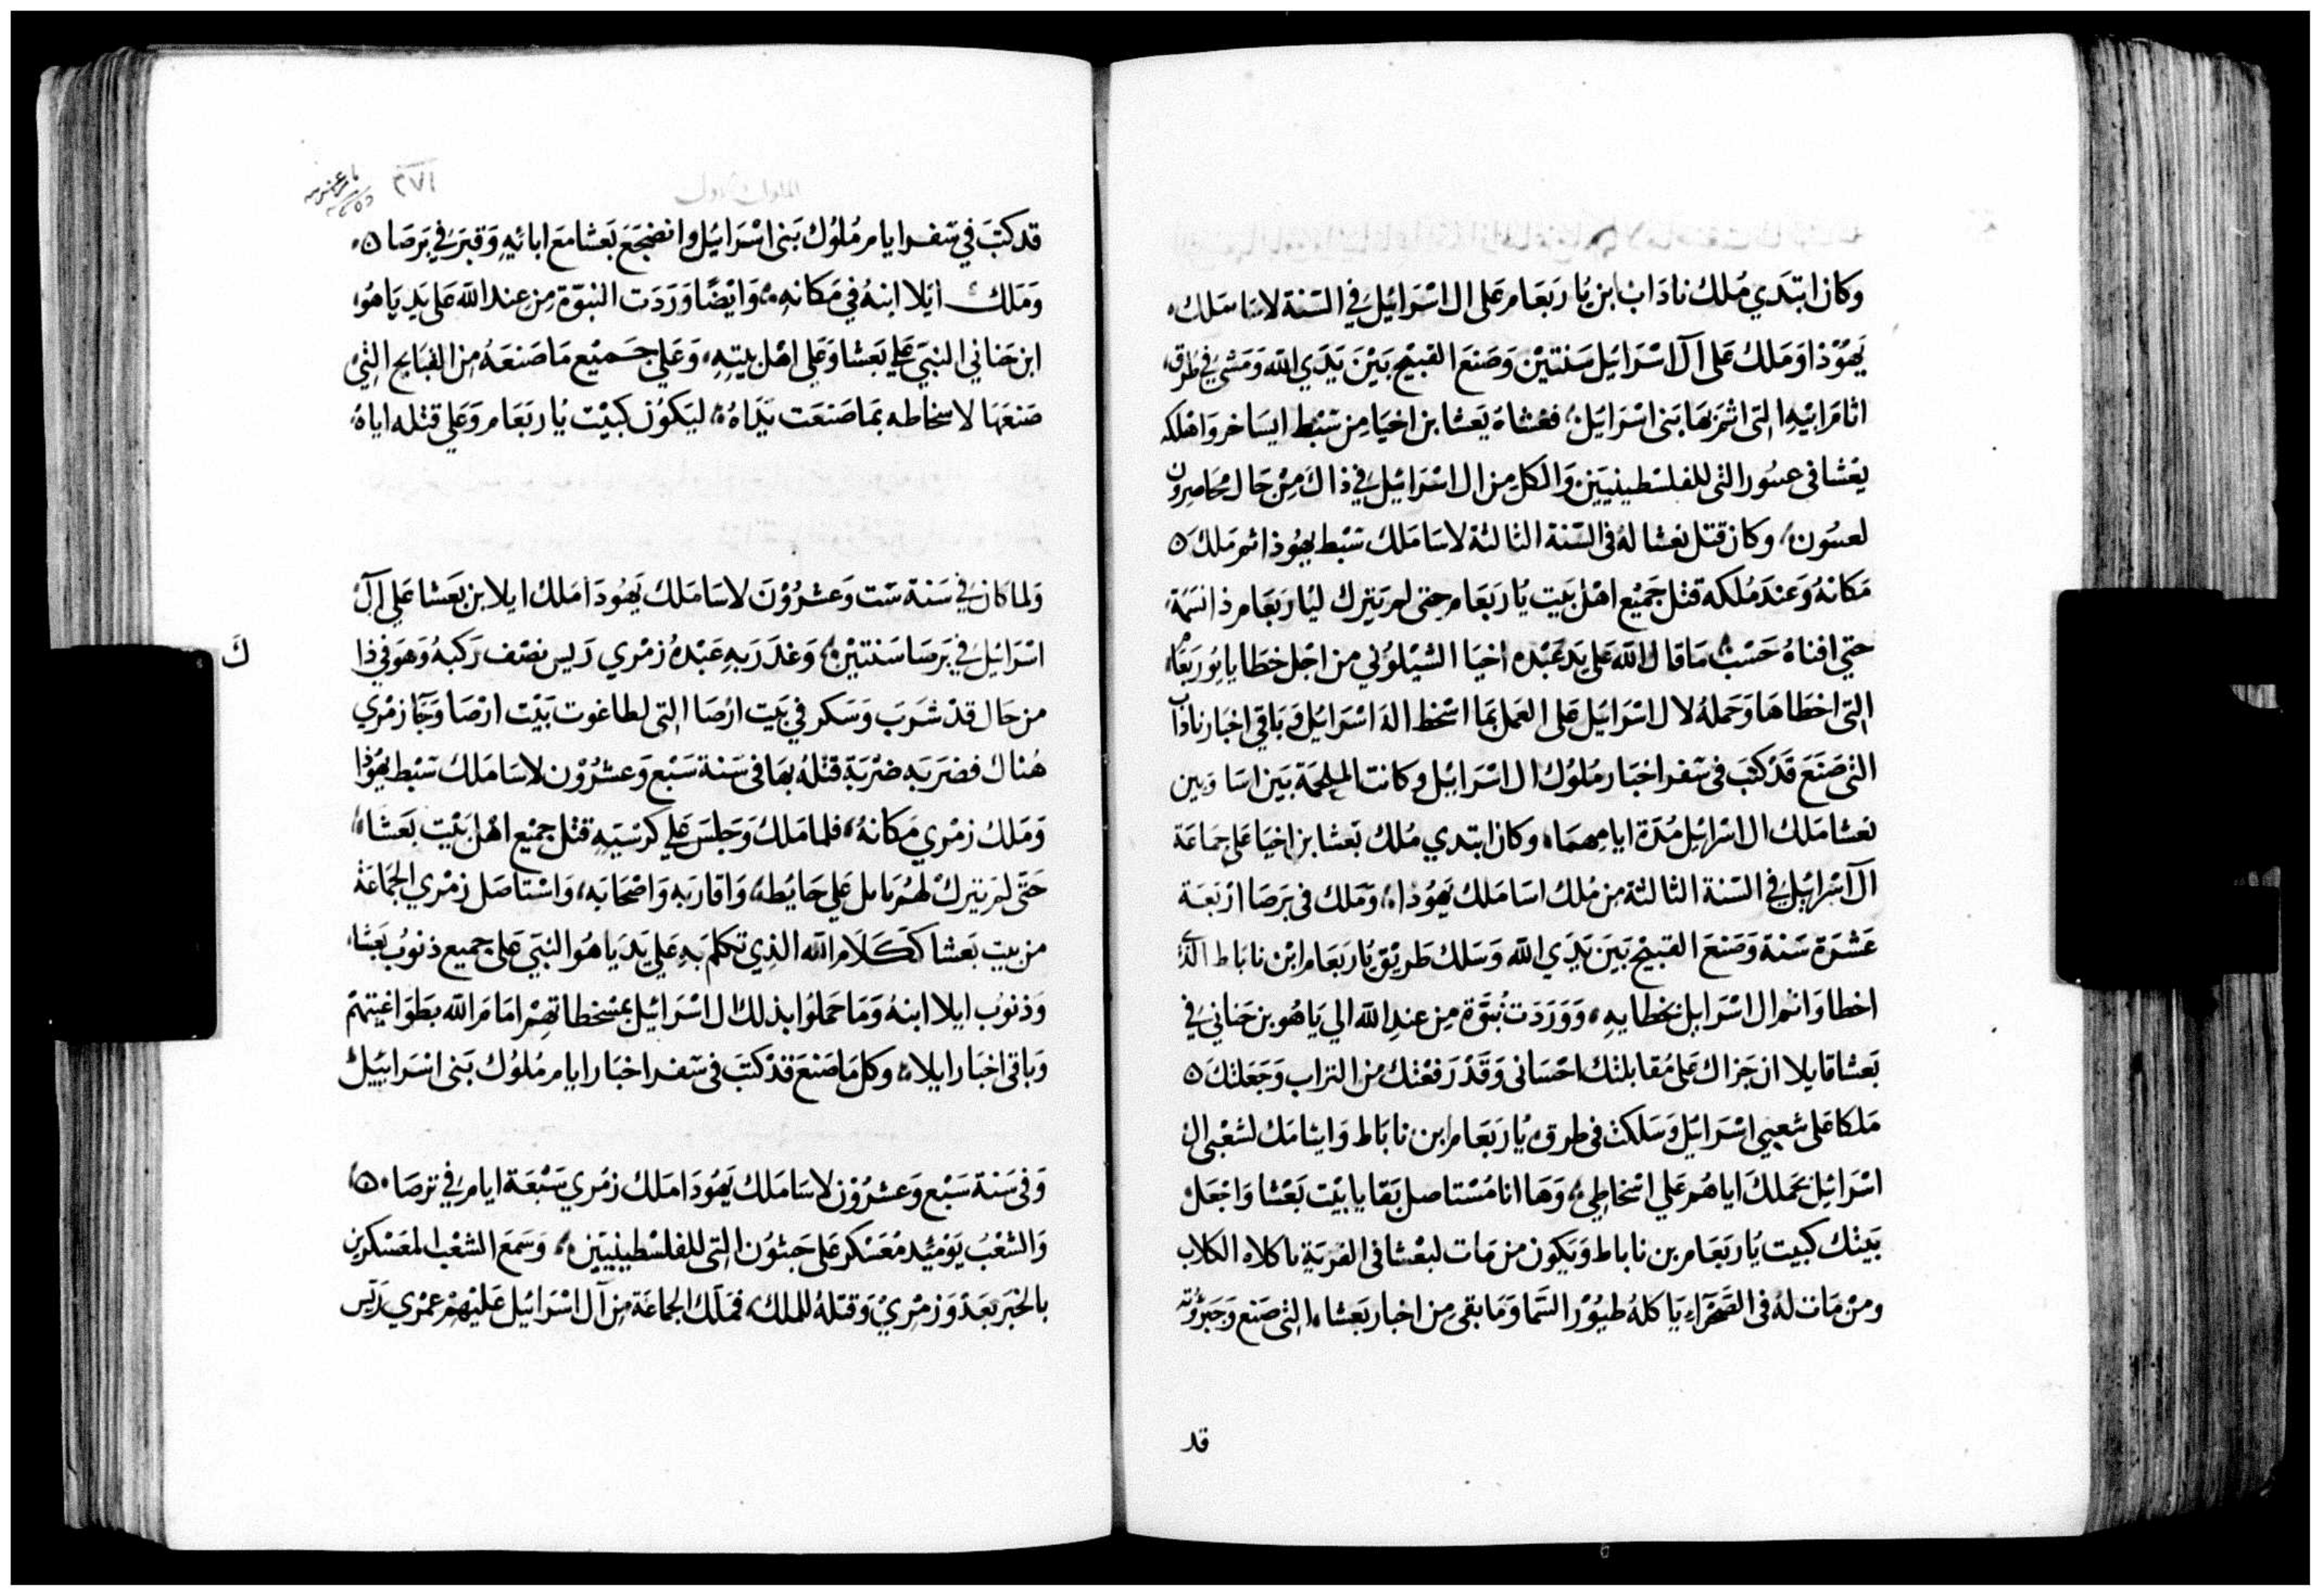 وكان ابتدي ملك ناداب ابن ياربعام على ال اسرائيل في السنة لاسا ملك
يهوذا وملك على آل اسرايل سنتين وصنع القبيح بين يدي الله ومشي في طرق
اثام ابيه التى اثم بها بنى اسرايل فغشاه بعشا بن اخيا من سبط ايساخر واهلكه
بعشا فى عسور التى للفلسطينيين والكل من ال اسرائيل في ذاك من حال محاصرون
لعسون وكان قتل بعشا له فى السنة الثالثة لاسا ملك سبط يهوذا ثم ملك
مكانه وعند ملكه قتل جميع اهل بيت ياربعام حتى لم يترك لياربعام ذا نسمة
حتي افناه حسب ما قال الله على يد عبده اخيا الشيلوني من اجل خطايا يوربعام
التى اخطاها وحمله لال اسرايل على العمل بما اسخط اله اسرايل وباقي اخبار ناداب
التى صنع قد كتب فى سفر اخبار ملوك ال اسرايل وكانت الملحمة بين اسا وبين
بعشا ملك ال اسرايل مدة ايامهما وكان ابتدي ملك بعشا بن اخيا على جماعة
ال اسرايل في السنة الثالثة من ملك اسا ملك يهوذا وملك فى برصا اربعة
عشرة سنة وصنع القبيح بين يدي الله وسلك طريق ياربعام ابن ناباط الذى
اخطا واثم ال اسرايل بخطايه ووردت نبوة من عند الله الي ياهو بن حناني في
بعشا قايلا ان جزاك على مقابلتك احسانى وقد رفعتك من التراب وجعلتك
ملكا على شعبي اسرايل وسلكت فى طرق ياربعام ابن ناباط وايثامك لشعبى ال
اسرايل بحملك اياهم علي اسخاطي وها انا مستاصل بقايا بيت بعشا واجعل
بيتك كبيت ياربعام بن ناباط ويكون من مات لبعشا فى القرية ياكلاه الكلاب
ومن مات له فى الصحراء ياكله طيور السما وما بقى من اخبار بعشا التى صنع وجبروته
قد
٢٧١
قد كتب في سفر ايام ملوك بنى اسرائيل وانضجع بعشا مع ابائيه وقبر في برصا
وملك ايلا ابنه في مكانه وايضا وردت النبوة من عند الله على يد ياهو
ابن حناني النبي على بعشا وعلى اهل بيته وعلي جميع ما صنعه من القبايح التى
صنعها لاسخاطه بما صنعت يداه ليكون كبيت ياربعام وعلي قتله اياه
ولما كان في سنة ست وعشرون لاسا ملك يهودا ملك ايلا بن بعشا على ال
اسرايل في برصا سنتين وغدر به عبده زمري ريس نصف ركبه وهو في ذا
ك
من حال قد شرب وسكر في بيت ارصا التى لطاغوت بيت ارصا وجا زمري
هناك فضربه ضربة قتله بها فى سنة سبع وعشرون لاسا ملك سبط يهوذا
وملك زمري مكانه فلما ملك وجلس علي كرسيه قتل جميع اهل بيت بعشا
حتى لم يترك لهم بايل علي حايط واقاربه واصحابه واستاصل زمري الجماعة
من بيت بعشا ككلام الله الذي تكلم به علي يد ياهو النبي على جميع ذنوب بعشا
وذنوب ايلا ابنه وما حملوا بذلك ال اسرائيل بمسخطاتهم امام الله بطواغيتهم
وباقى اخبار ايلا وكل ما صنع قد كتب فى سفر اخبار ايام ملوك بنى اسراييل
وفى سنة سبع وعشرون لاسا ملك يهودا ملك زمري سبعة ايام في ترصا
والشعب يوميد معسكر على جبثون التى للفلسطينيين وسمع الشعب المعسكرين
بالخبر بغد وزمري وقتله للملك فملك الجماعة من آل اسرائيل عليهم عمري ريس